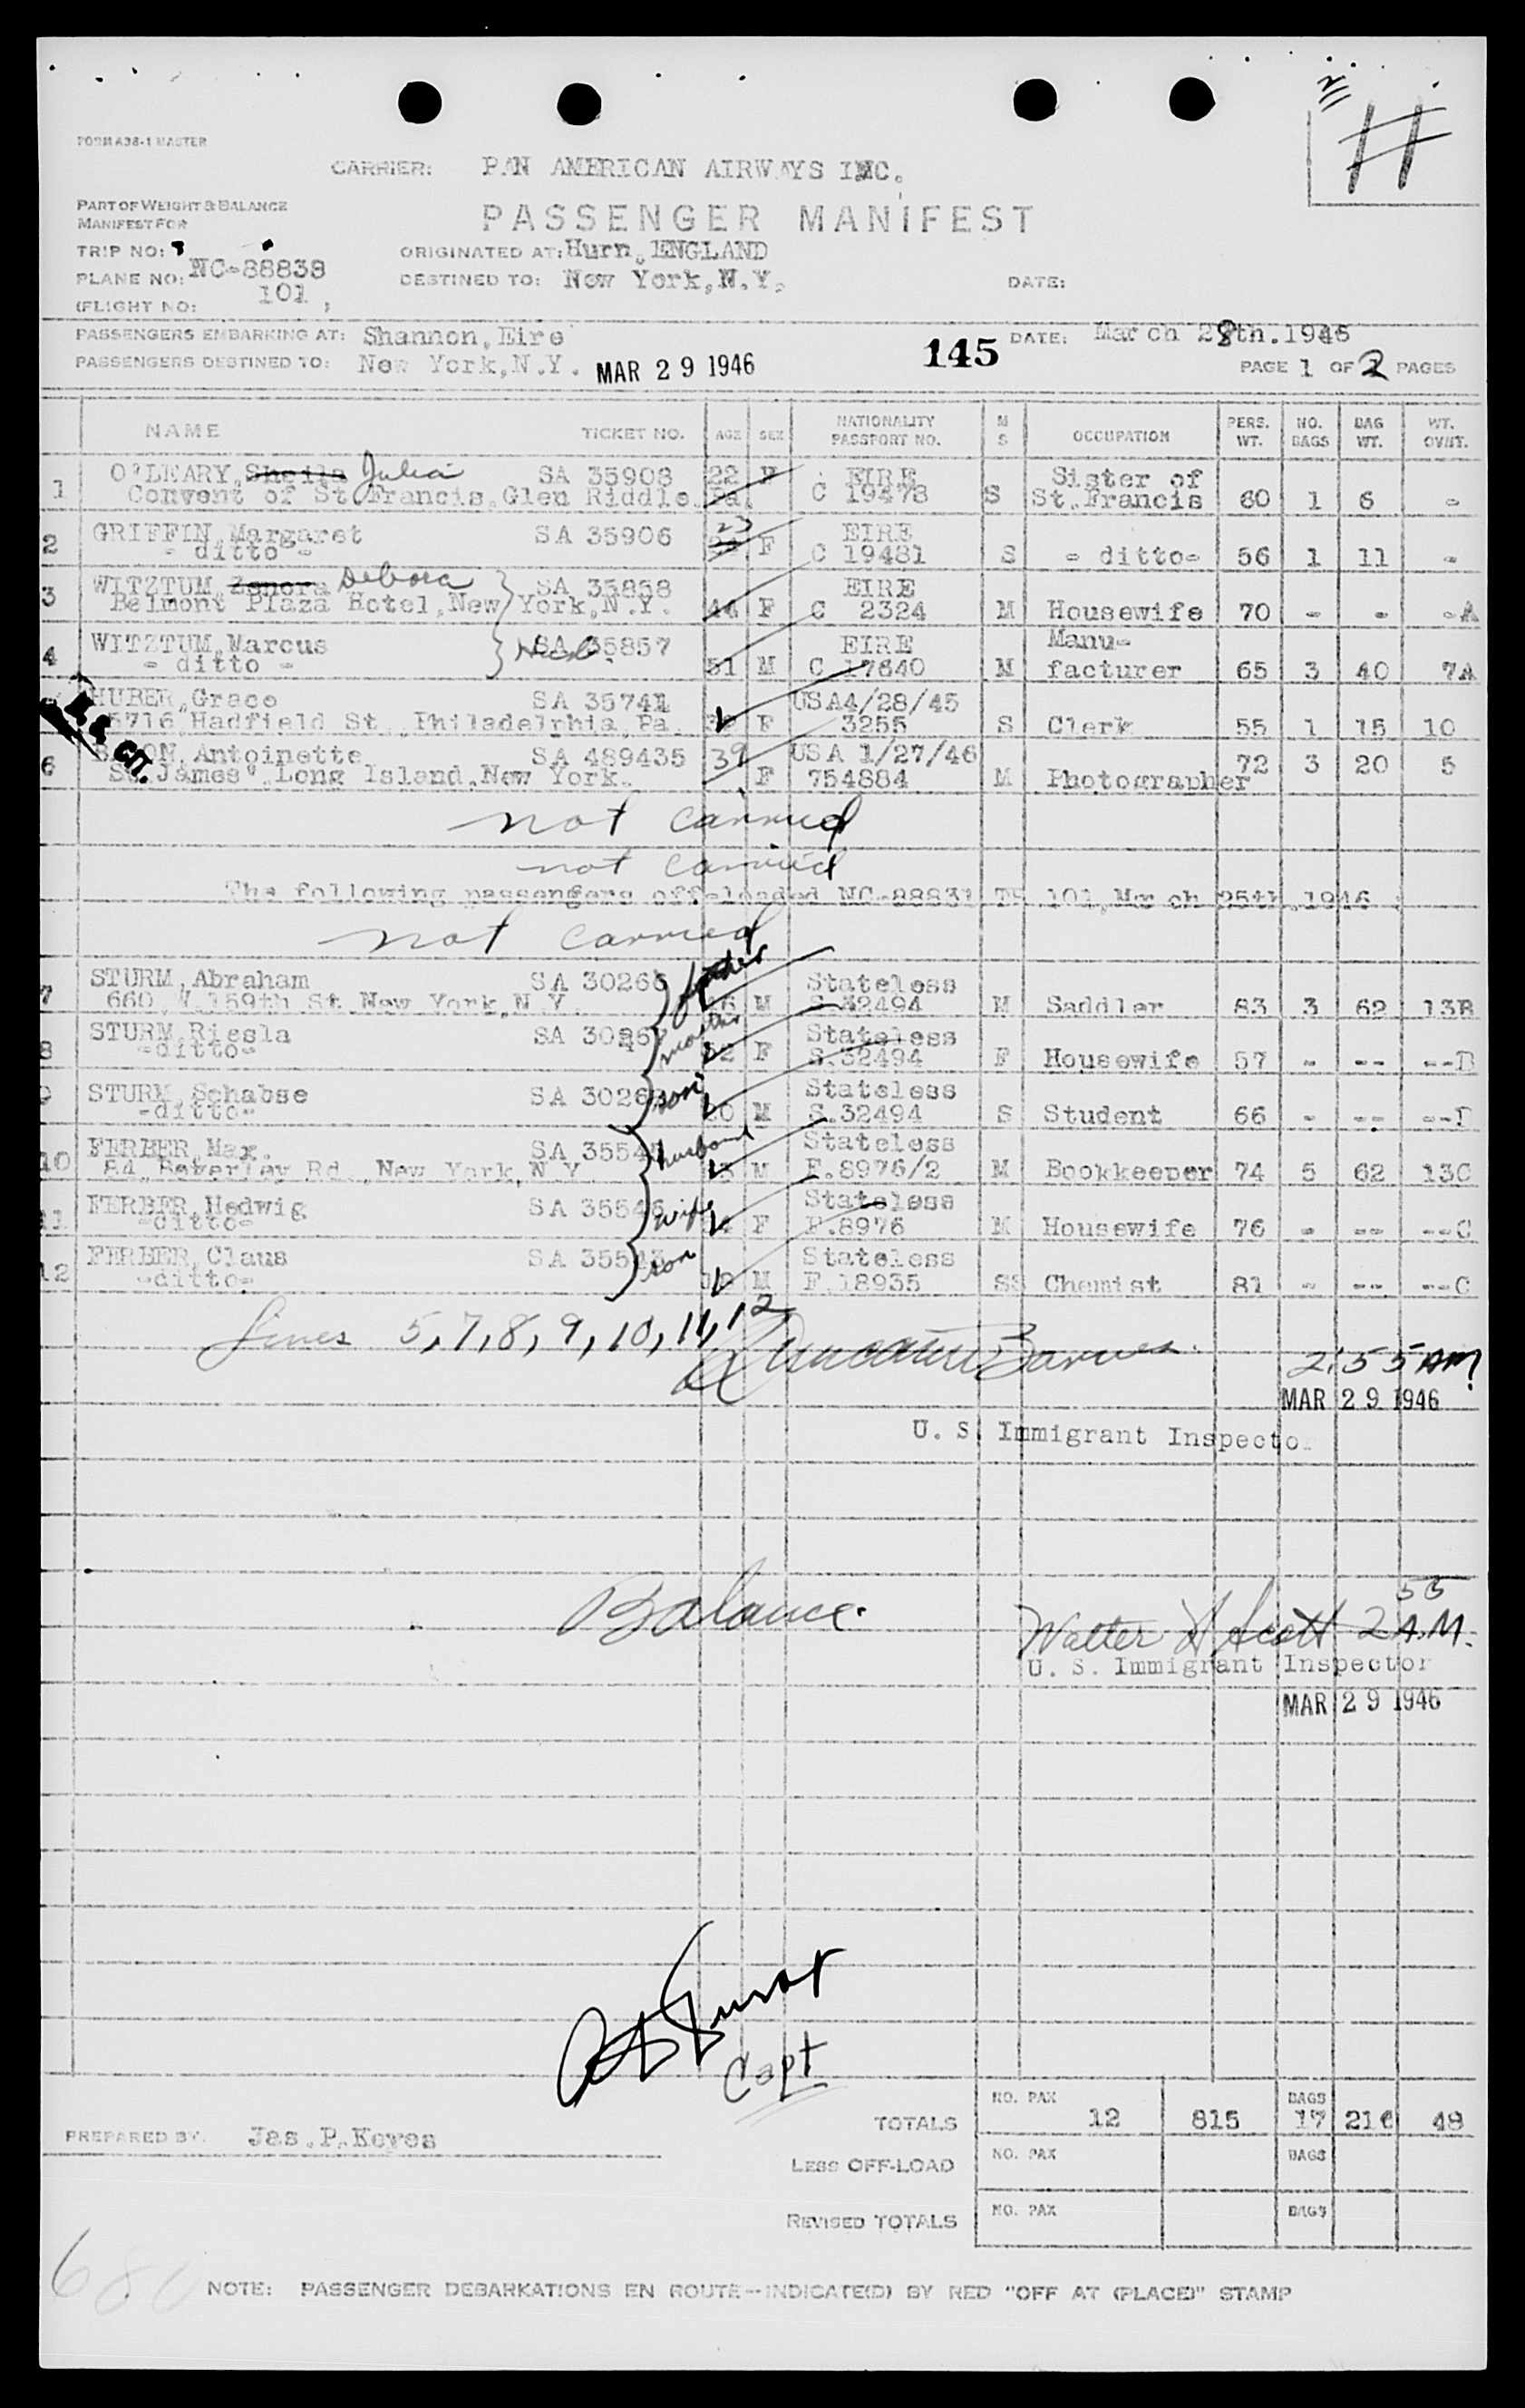 FORM A38-1 MASTER
CARRIER: PAN AMERICAN AIRWAYS INC.
PART OF WEIGHT & BALANCE
MANIFEST FOR
PASSENGER MANIFEST
TRIP NO:
ORIGINATED AT: Hurn, ENGLAND
PLANE NO: NC-88838
DESTINED TO: New York, N.Y.
DATE:
(FLIGHT NO: 101
PASSENGERS EMBARKING AT: Shannon, Eire
DATE: March 28th. 1946
PASSENGERS DESTINED TO: New York, N.Y. MAR 29 1946
145
PAGE 1 OF 2 PAGES
NAME TICKET NO. AGE SEX NATIONALITY PASSPORT NO. M S OCCUPATION PERS. WT. NO. BAGS BAG WT. WT. OV/WT.
1 O'LEARY, Sheila Julia SA 35908 22 F EIRE Sister of
Convent of St Francis, Glen Riddle Pa. C 19478 S St. Francis 60 1 6 -
2 GRIFFIN, Margaret SA 35906 23 EIRE
- ditto - F C 19481 S - ditto- 56 1 11 -
3 WITZTUM, Zenora Debora SA 35858 EIRE
Belmont Plaza Hotel, New York, N.Y. 44 F C 2324 M Housewife 70 - - -A
4 WITZTUM, Marcus SA 35857 EIRE Manu-
- ditto - 51 M C 17640 M facturer 65 3 40 7A
HUBER, Grace SA 35741 USA 4/28/45
5716, Hadfield St., Philadelphia, Pa. F 3255 S Clerk 55 1 15 10
U.S. CIT.
6 Antoinette SA 489435 39 USA 1/27/46 72 3 20 5
St. James', Long Island, New York. F 754884 M Photographer
not carried
not carried
The following passengers off-loaded NC-88831 101, March 25th, 1946
not carried
7 STURM, Abraham SA 30266 father Stateless
660, W. 159th St. New York, N.Y. M S.32494 M Saddler 83 3 62 13B
8 STURM, Riesla mother Stateless
-ditto- 52 F S.32494 F Housewife 57 - -- --B
9 STURM, Schabse son Stateless
-ditto- 20 M S.32494 S Student 66 - -- --B
10 FERBER, Max. husband Stateless
84, Beverley Rd., New York, N.Y. M F.8976/2 M Bookkeeper 74 5 62 13C
11 FERBER, Hedwig SA 35546 wife Stateless
-ditto- F F.8976 M Housewife 76 - -- --C
12 FERBER, Claus son Stateless
-ditto- M F.18935 SS Chemist 81 - -- --C
Lines 5, 7, 8, 9, 10, 11, 12
Duncan Barnes
2.55 AM
MAR 29 1946
U. S. Immigrant Inspector
Balance.
Walter H Scott 2 55 A.M.
U. S. Immigrant Inspector
MAR 29 1946
Capt
TOTALS NO. PAX 12 815 BAGS 17 216 48
PREPARED BY. Jas. P. Keyes
LESS OFF-LOAD NO. PAX BAGS
REVISED TOTALS NO. PAX BAGS
NOTE: PASSENGER DEBARKATIONS EN ROUTE--INDICATE(D) BY RED "OFF AT (PLACE)" STAMP